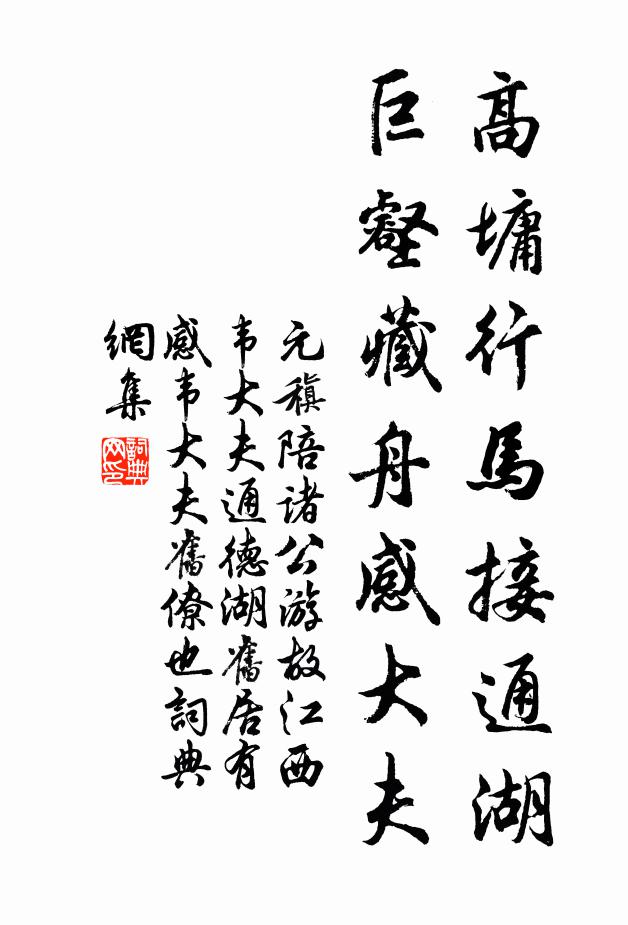 高墉行馬接通湖
巨壑藏舟感大夫
元稹陪諸公游故江西
韦大夫通德湖舊居有
感韦大夫舊僚也詞典
網集
詞典
网印